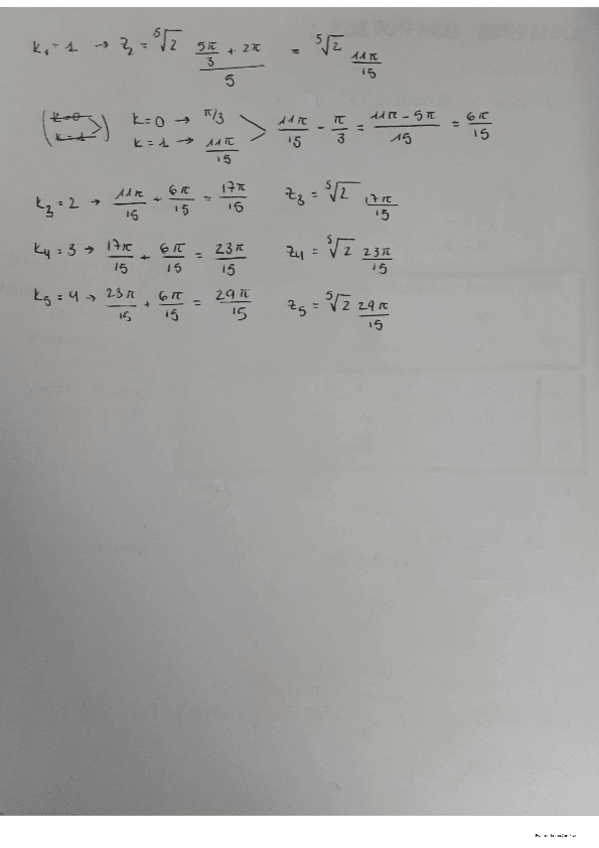 K₁ = 1 → Z₂ = ⁵√2 (5π/3 + 2π)/5 = ⁵√2 11π/15
k=0 k=0 → π/3
k=1 k=1 → 11π/15 11π/15 - π/3 = (11π - 5π)/15 = 6π/15
K₃ = 2 → 11π/15 + 6π/15 = 17π/15 Z₃ = ⁵√2 17π/15
K₄ = 3 → 17π/15 + 6π/15 = 23π/15 Z₄ = ⁵√2 23π/15
K₅ = 4 → 23π/15 + 6π/15 = 29π/15 Z₅ = ⁵√2 29π/15